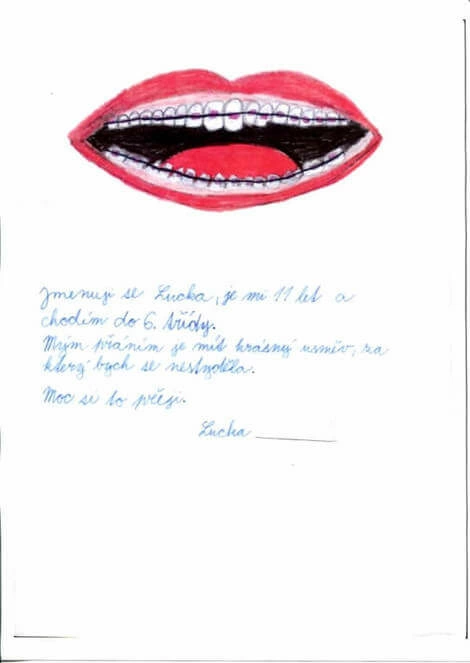 Jmenuji se Lucka, je mi 11 let a
chodím do 6. třídy.
Mým přáním je mít krásný usměv, za
který bych se nestyděla.
Moc si to přeji.
Lucka